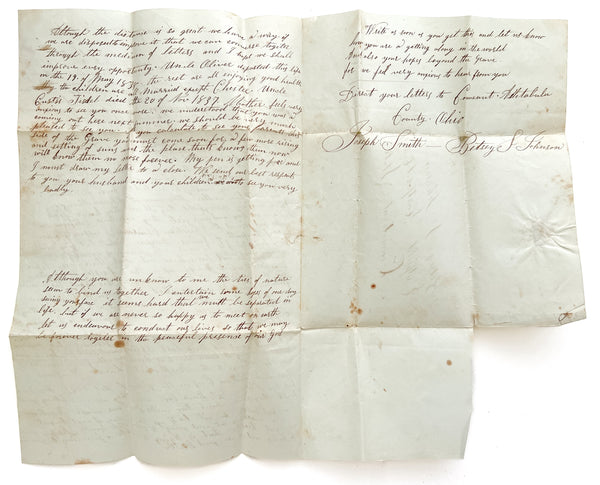 Although the distance is so great we have a way of
we are disposed to improve it that we can converse together
through the medium of letters and I hope we shall
improve every opportunity. Uncle Oliver departed this life
on the 19 of May 18 the rest are all enjoying good health
the children are all Married except Chester. Uncle
Curtis died the 20 of Nov 1837. Mother feels very
anxious to see you once more we understood by you was a
coming out here next summer we should be very much
pleased to see you if you calculate to see your parents this
side of the Grave you must come soon for a few more rising
and setting of suns and the place that knows them now
will know them no more forever. My pen is getting poor and
I must draw my letter to a close. We send our best respect
to you your husband and your children we want to see you very
badly.
Although you are unknow to me the ties of nature
seem to bind us together. I entertain some hopes of one day
seeing your face it seems hard that we must be separated in
life but if we are never so happy as to meet on earth
let us endeavour to conduct our lives so that we may
be forever together in the peaceful presence of our God
Write as soon as you get this and let us know
how you are a getting along in the world
And also your hopes beyond the grave
for we feel very anxious to hear from you
Direct your letters to Conneaut Ashtabula
County Ohio
Joseph Smith Betsey S Johnson